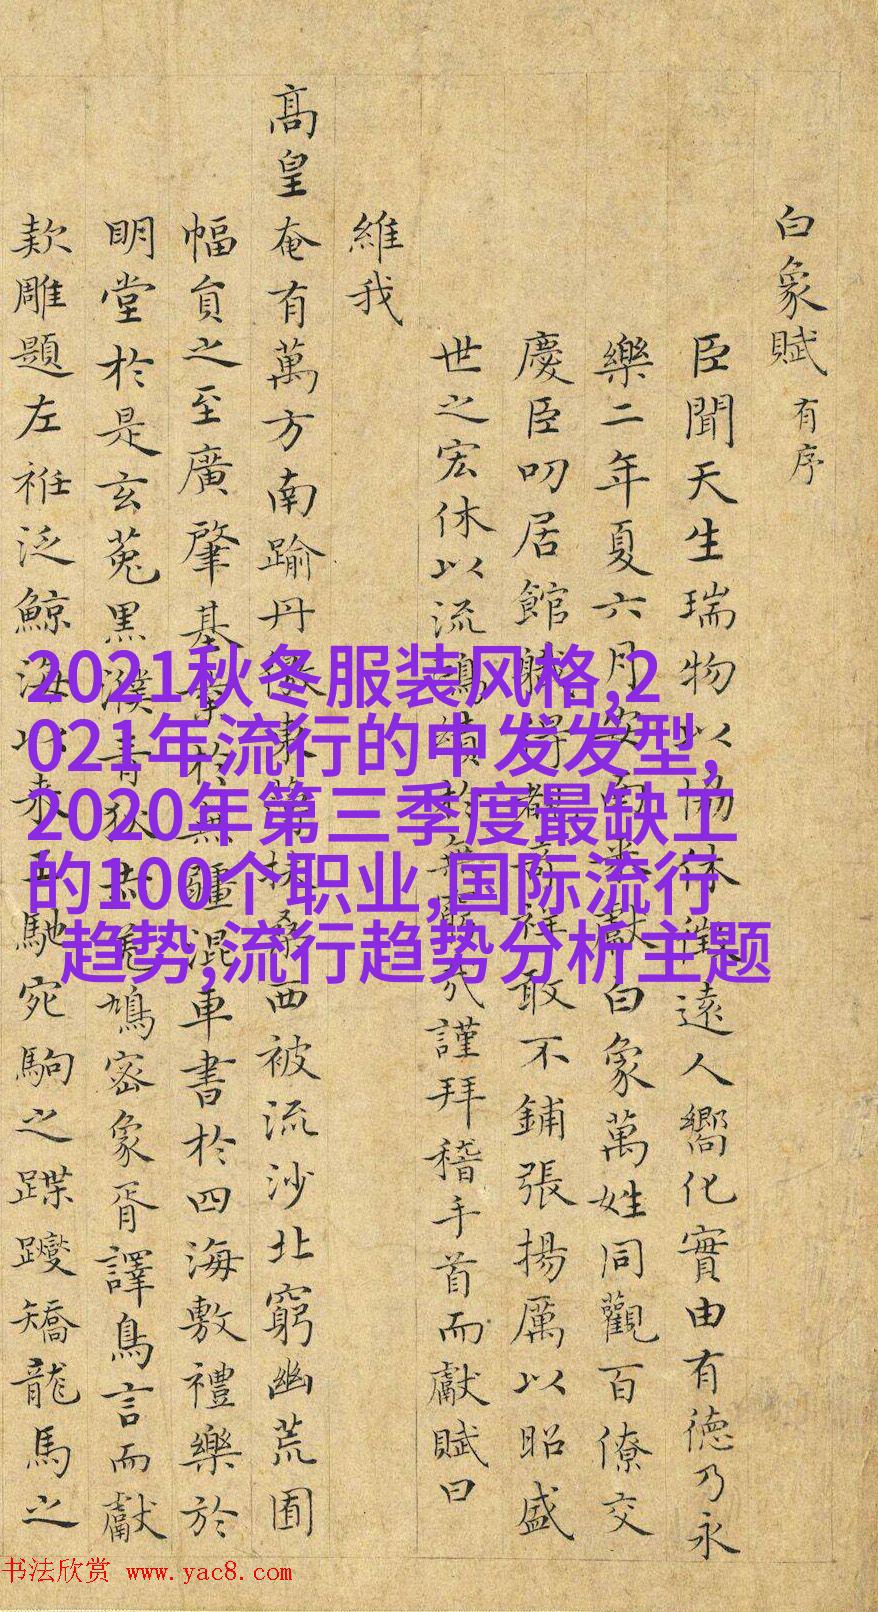 白象賦 有序
臣聞天生瑞物以協休徵遠人嚮化實由有德乃永
樂二年夏六月安南獻白象萬姓同觀百僚交
慶臣叨居館職得祥敢不鋪張揚厲以昭盛
世之宏休以流鴻績於無謹拜稽手首而獻賦曰
維我
髙皇奄有萬方南踰丹徼東扶桑西被流沙北窮幽荒圃
幅貟之至廣肇基於無疆混車書於四海敷禮樂於
明堂於是玄菟黑濮青狄鳩密象胥譯鳥言而獻
欵雕題左袵泛鯨海以来王馳宛駒之蹀躞矯龍馬之
2021秋冬服装风格,2
021年流行的中发发型,
2020年第三季度最缺工
的100个职业,国际流行
趋势,流行趋势分析主题
书法欣赏 www.yac8.com